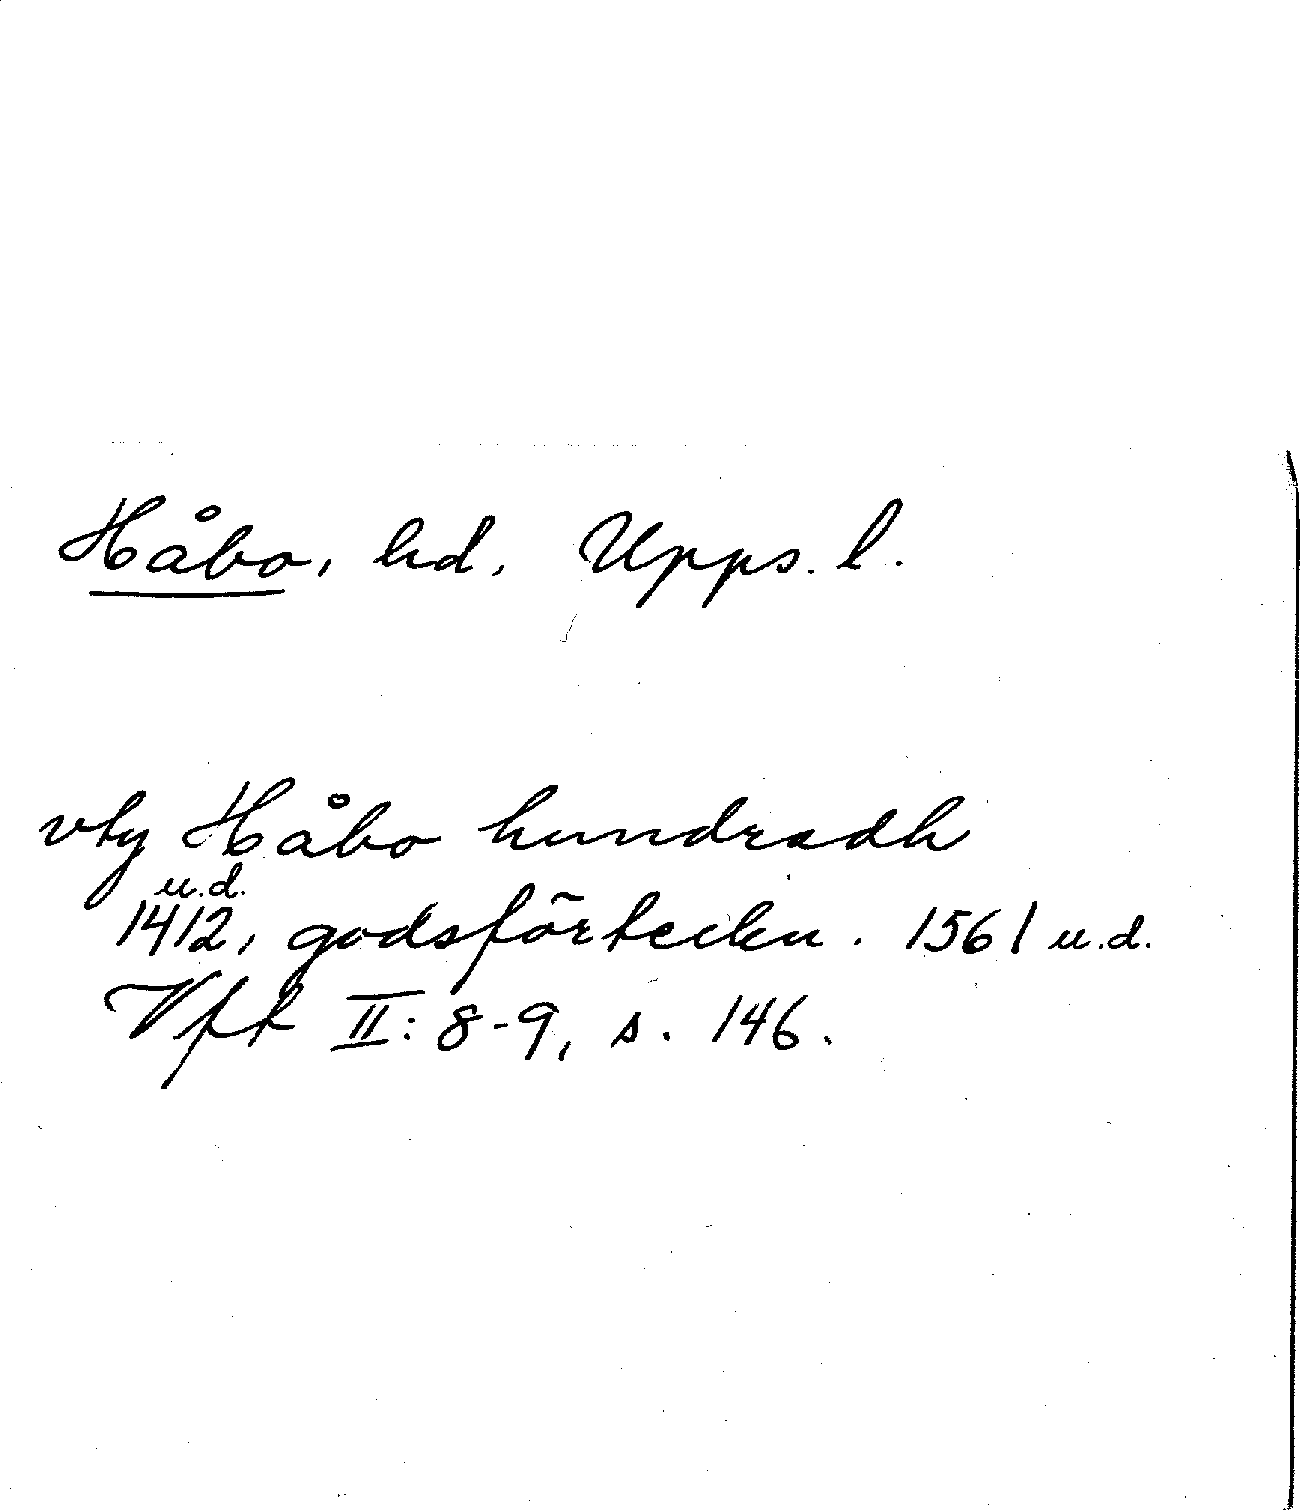 Håbo, hd, Upps. l.
vty Håbo hundradh
u.d.
1412, godsförteckn. 1561 u.d.
Vfk II: 8-9, s. 146.